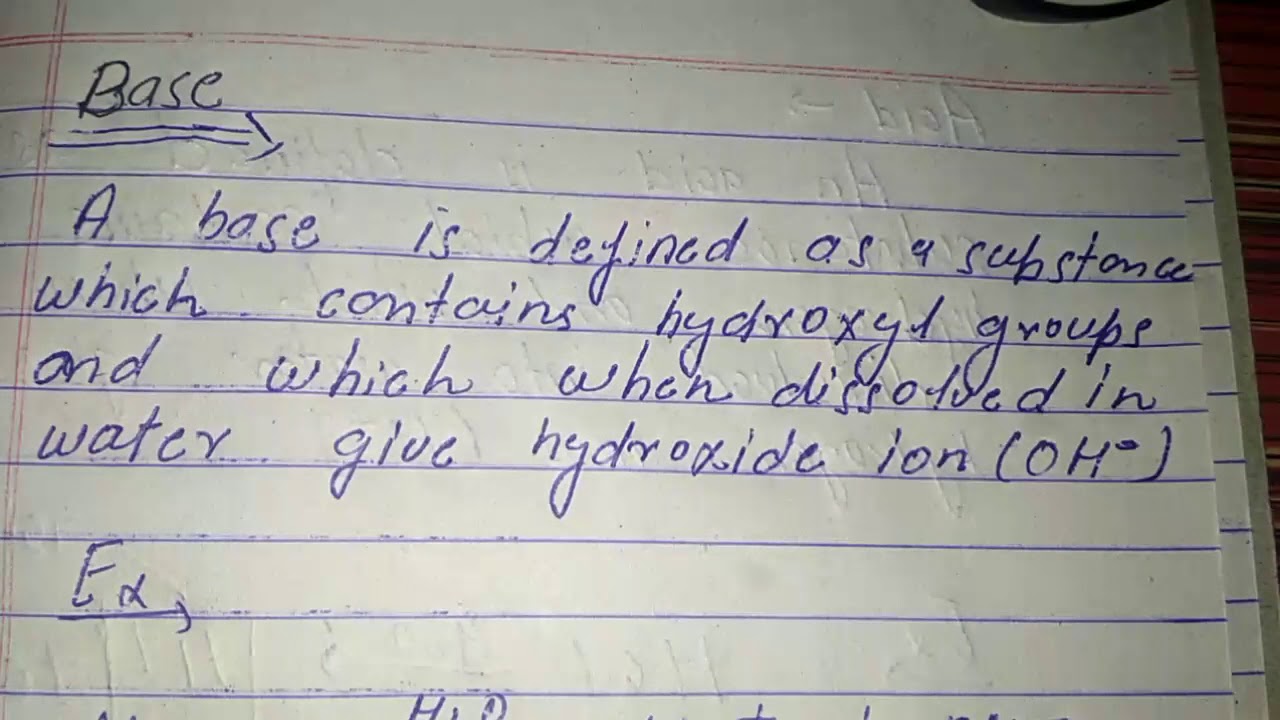 Base
A base is defined as a substance
which contains hydroxyl groups
and which when dissolved in
water give hydroxide ion (OH⁻)
Ex
H₂O